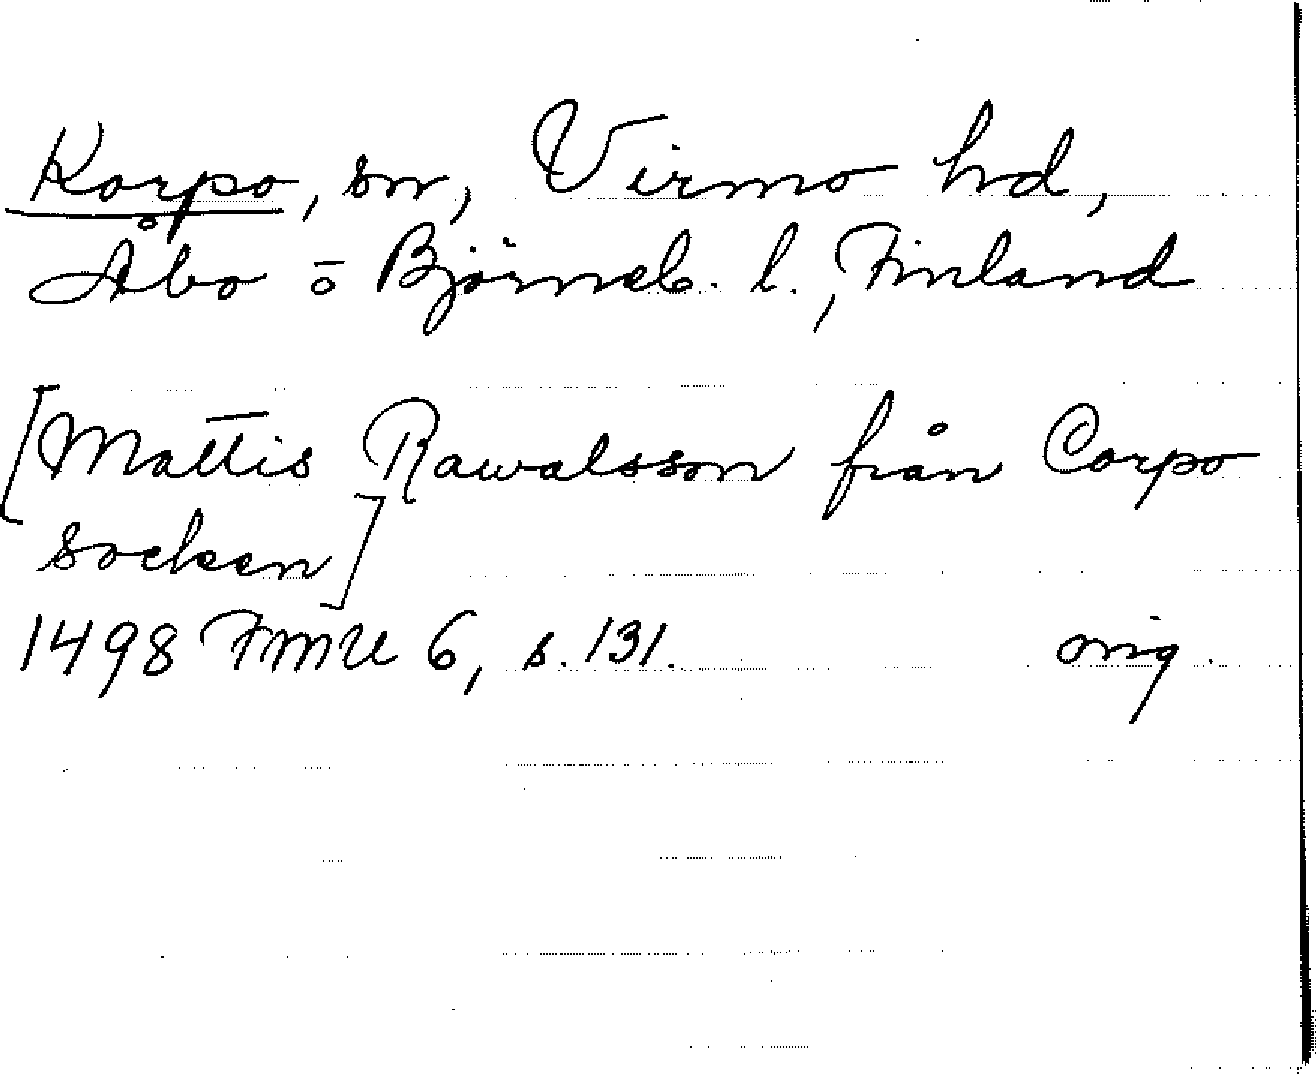 Korpo, sn, Virmo hd,
Åbo o Björneb. l., Finland
[Mattis Rawalsson från Corpo
socken]
1498 FMU 6, s. 131. orig.